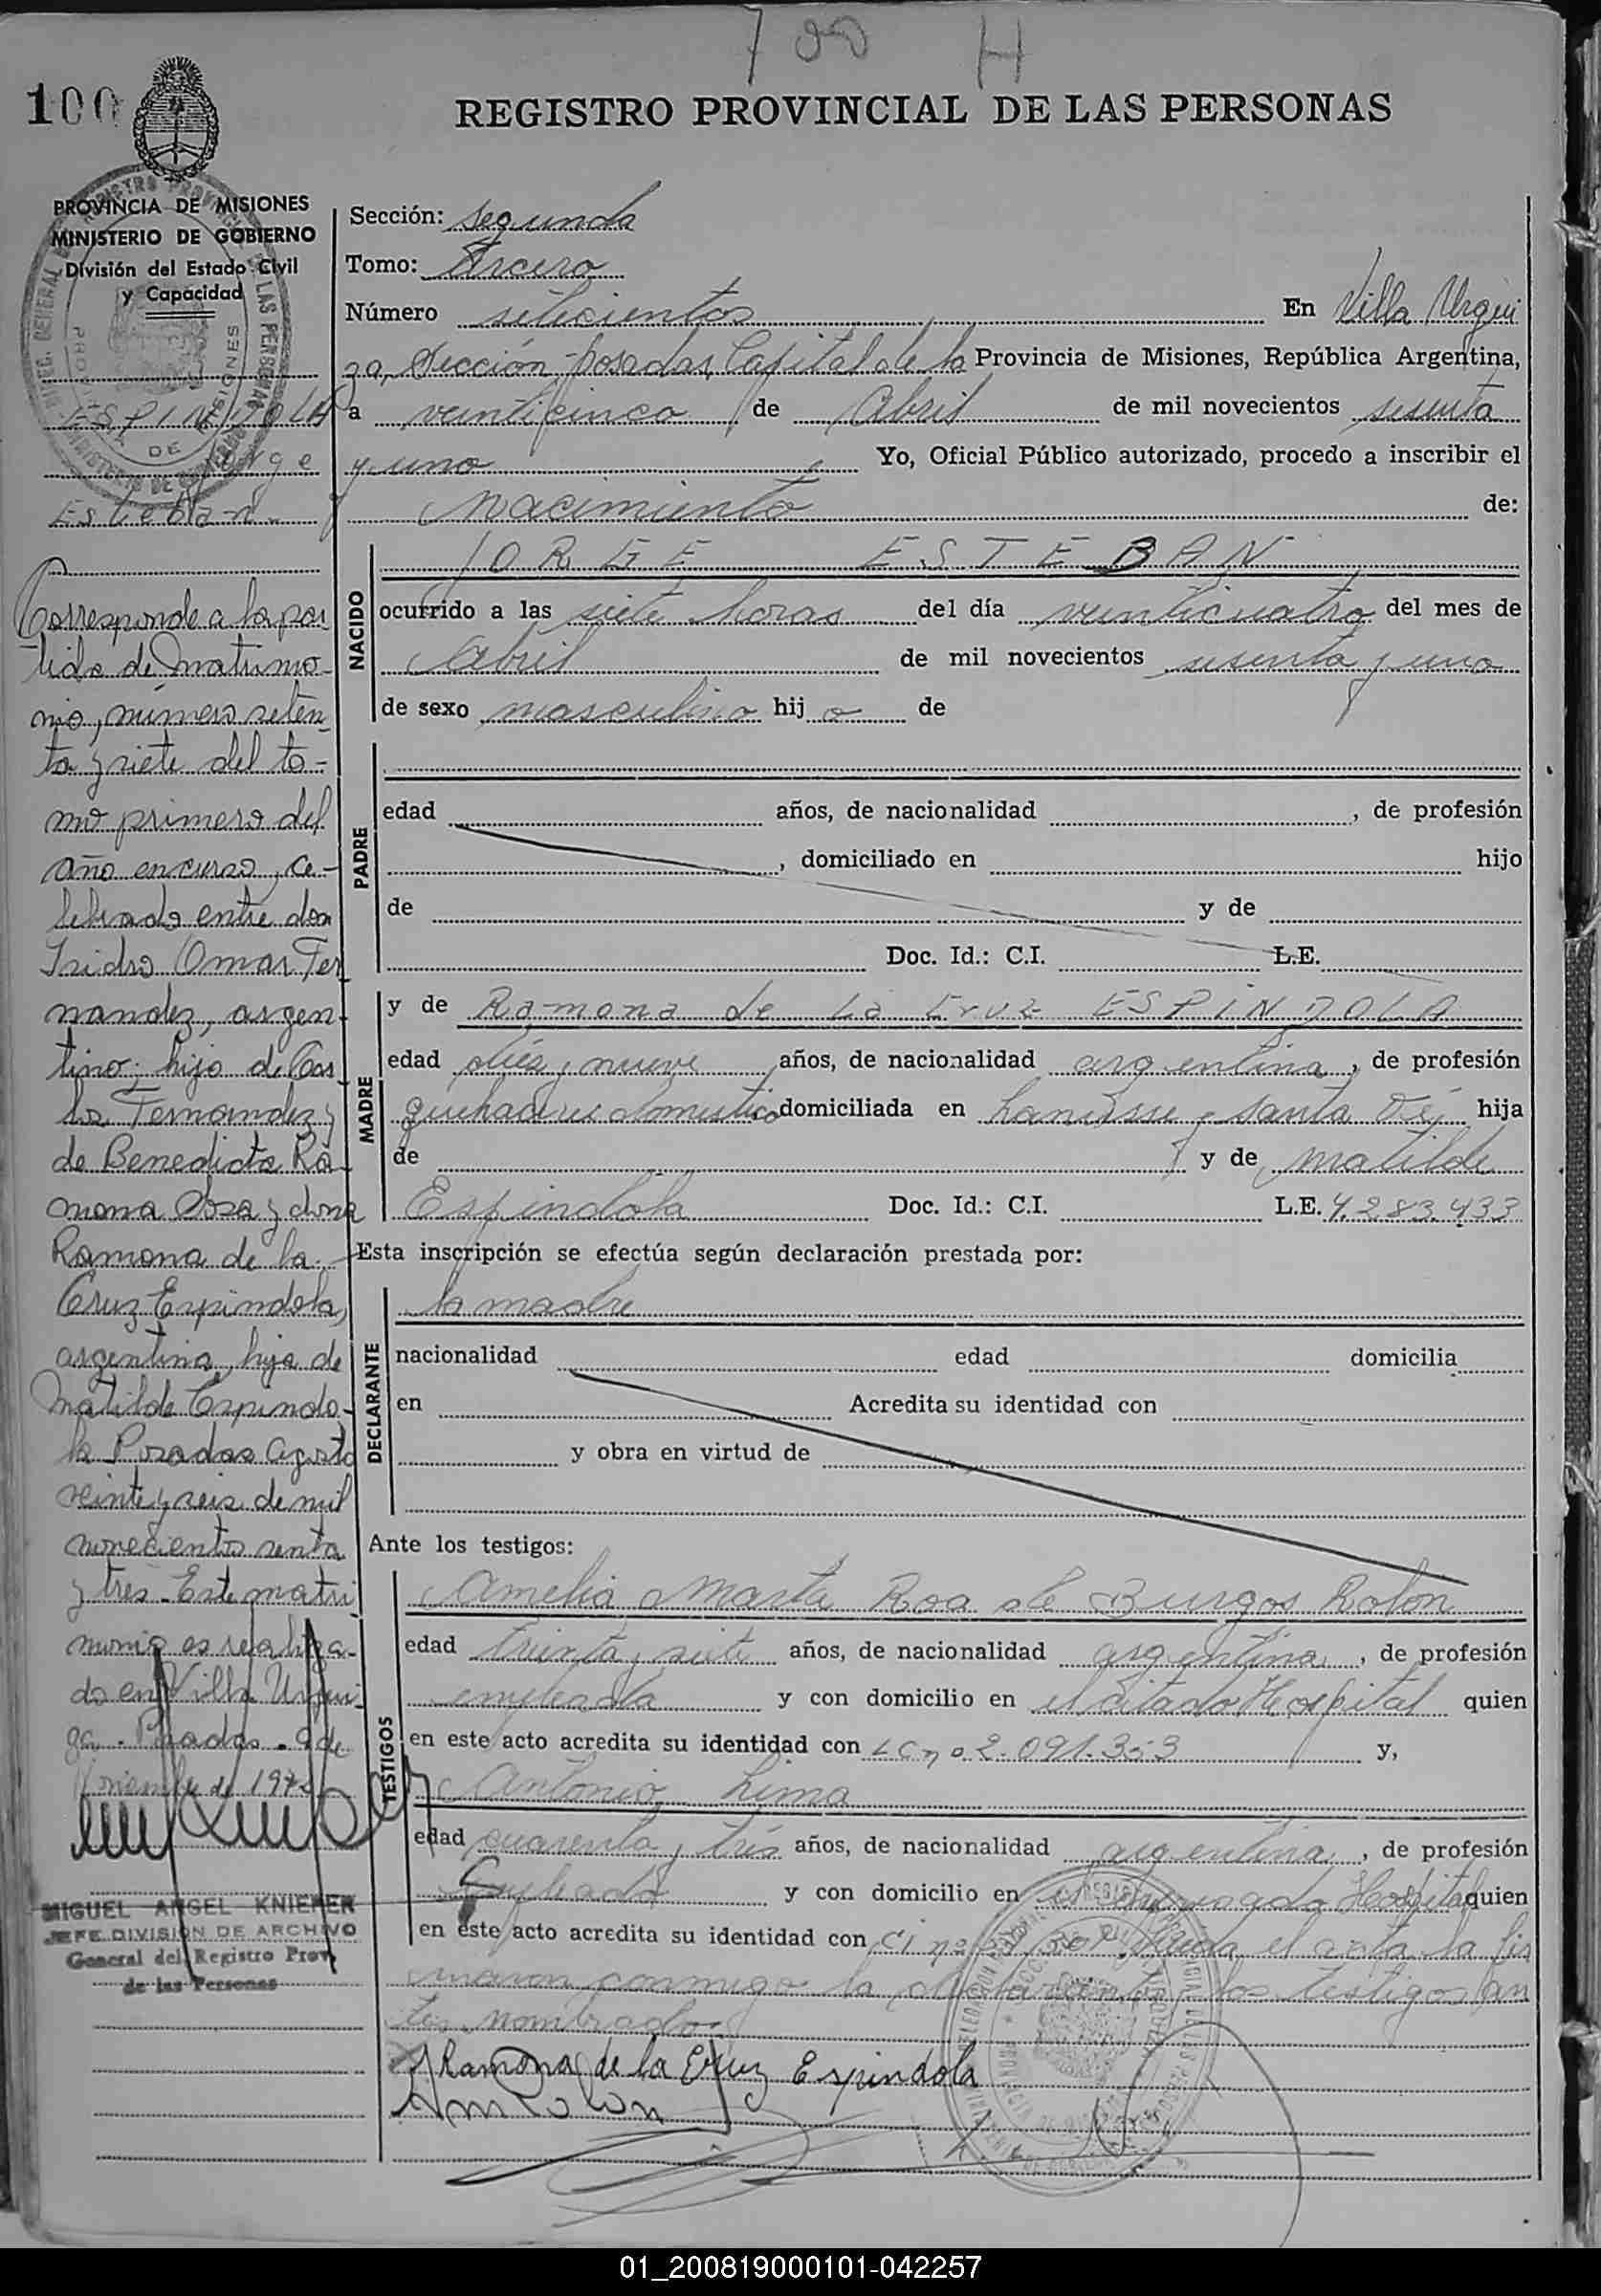 700 H
100
REGISTRO PROVINCIAL DE LAS PERSONAS
PROVINCIA DE MISIONES
MINISTERIO DE GOBIERNO
División del Estado Civil
y Capacidad
ESPINDOLA
Jorge
Esteban.-
Corresponde a la par
tida de matrimo-
nio, número seten-
ta y siete del to-
mo primero del
año en curso, ce-
lebrado entre don
Isidro Omar Fer
nandez, argen-
tino, hijo de Car
los Fernandez y
de Benedicta Ra-
mona Sosa y doña
Ramona de la
Cruz Espindola,
argentina, hija de
Matilde Espindo-
la Posadas agosto
veinte y seis de mil
novecientos senta
y tres. Este matri
monio es realiza-
do en Villa Urqui
za. Posadas. 9 de
Noviembre de 197
MIGUEL ANGEL KNIEPER
JEFE DIVISIÓN DE ARCHIVO
General del Registro Prov.
de las Personas
Sección: segunda
Tomo: tercero
Número setecientos En Villa Urqui
za, Sección Posadas, Capital de la Provincia de Misiones, República Argentina,
a veinticinco de Abril de mil novecientos sesenta
y uno Yo, Oficial Público autorizado, procedo a inscribir el
nacimiento de:
NACIDO
JORGE ESTEBAN
ocurrido a las siete horas del día veinticuatro del mes de
Abril de mil novecientos sesenta y uno
de sexo masculino hij o de
PADRE
edad años, de nacionalidad , de profesión
, domiciliado en hijo
de y de
Doc. Id.: C.I. L.E.
MADRE
y de Ramona de La Cruz ESPINDOLA
edad diez y nueve años, de nacionalidad argentina, de profesión
quehaceres domestico domiciliada en Lanusse y Santa Fé, hija
de y de Matilde
Espindola Doc. Id.: C.I. L.E. 4.283.433
Esta inscripción se efectúa según declaración prestada por:
DECLARANTE
la madre
nacionalidad edad domicilia
en Acredita su identidad con
y obra en virtud de
Ante los testigos:
TESTIGOS
Amelia Marta Roa de Burgos Rolon
edad treinta y siete años, de nacionalidad argentina, de profesión
empleada y con domicilio en el citado Hospital quien
en este acto acredita su identidad con LC nº 2.091.353 y,
Antonio Lima
edad cuarenta y tres años, de nacionalidad argentina, de profesión
Empleado y con domicilio en el Hospital quien
en este acto acredita su identidad con CI nº el acta la fir
maron conmigo la declarante y los testigos an
tes nombrados
Ramona de la Cruz Espindola
AmRolon
01_200819000101-042257